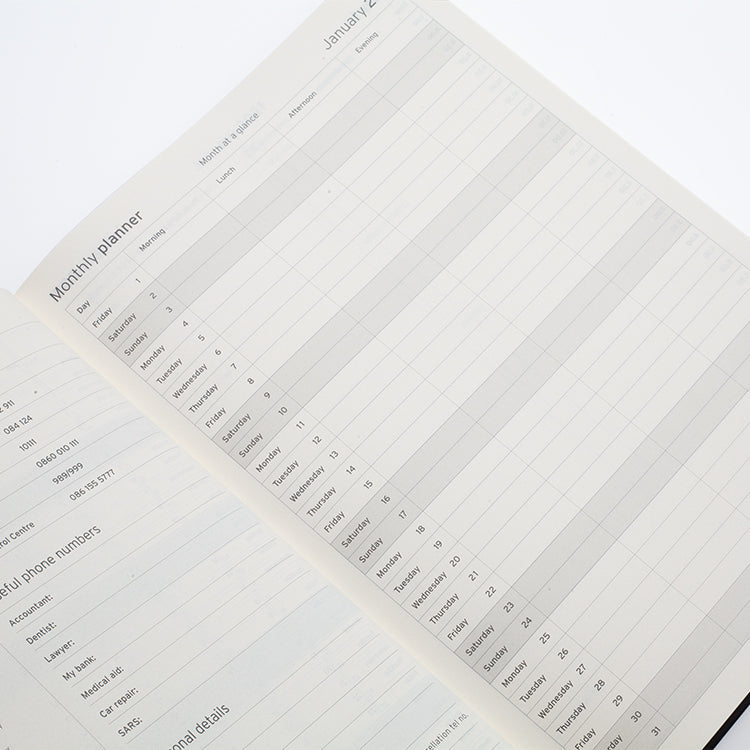 2 911
084 124
10111
0860 010 111
989/999
086 155 5777
rol Centre
eful phone numbers
Accountant:
Dentist:
Lawyer:
My bank:
Medical aid:
Car repair:
SARS:
onal details
cellation tel no.
Monthly planner
Month at a glance
January 2
Day Morning Lunch Afternoon Evening
Friday 1
Saturday 2
Sunday 3
Monday 4
Tuesday 5
Wednesday 6
Thursday 7
Friday 8
Saturday 9
Sunday 10
Monday 11
Tuesday 12
Wednesday 13
Thursday 14
Friday 15
Saturday 16
Sunday 17
Monday 18
Tuesday 19
Wednesday 20
Thursday 21
Friday 22
Saturday 23
Sunday 24
Monday 25
Tuesday 26
Wednesday 27
Thursday 28
Friday 29
Saturday 30
31